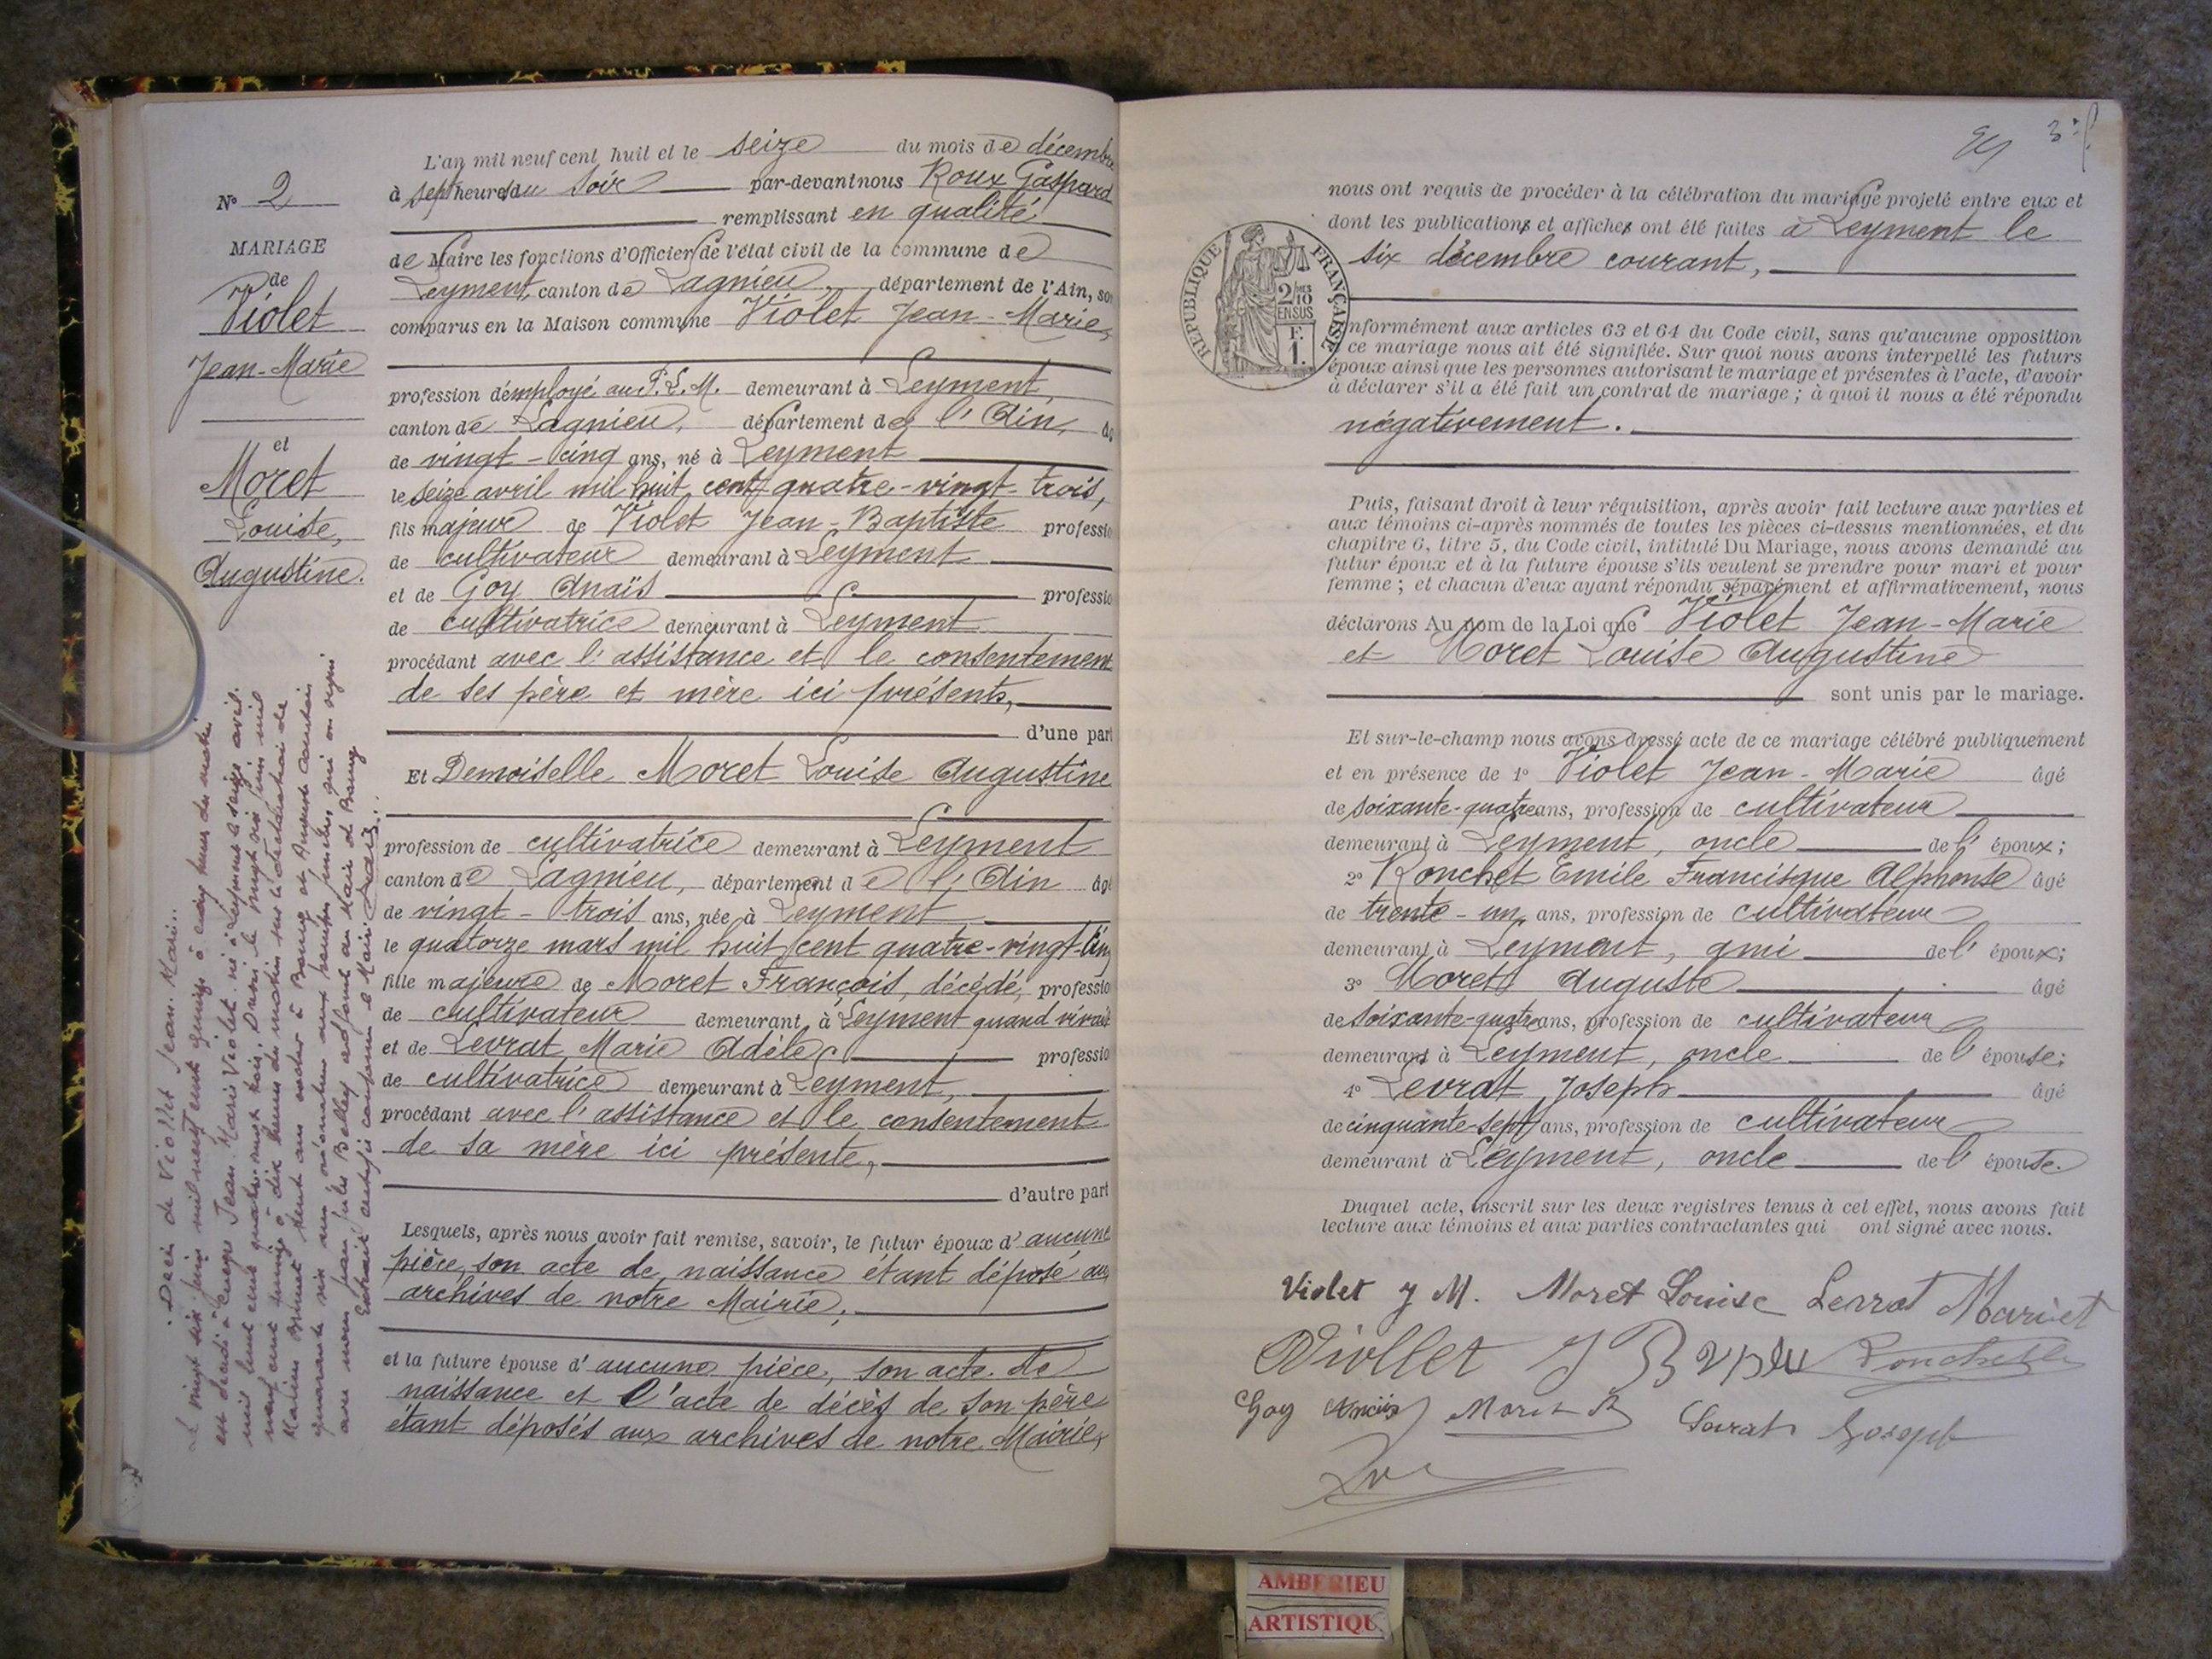 L'an mil neuf cent huit et le seize du mois de décembre
N° 2
à sept heures du soir par-devant nous Roux Gaspard
remplissant en qualité
MARIAGE
de Maire les fonctions d'Officier de l'état civil de la commune de
de
Leyment, canton de Lagnieu, département de l'Ain, so
Violet
comparus en la Maison commune Violet Jean-Marie,
Jean-Marie
profession d'employé au P.L.M. demeurant à Leyment,
canton de Lagnieu, département de l'Ain, âg
et
de vingt-cinq ans, né à Leyment
Moret
le seize avril mil huit cent quatre-vingt-trois,
Louise,
fils majeur de Violet Jean-Baptiste professio
de cultivateur demeurant à Leyment
Augustine.
et de Goy Anaïs professio
de cultivatrice demeurant à Leyment
procédant avec l'assistance et le consentement
de ses père et mère ici présents,
d'une part
Et Demoiselle Moret Louise Augustine
profession de cultivatrice demeurant à Leyment
canton de Lagnieu, département de l'Ain âgé
de vingt-trois ans, née à Leyment,
le quatorze mars mil huit cent quatre-vingt-cinq
fille majeure de Moret François, décédé, professio
de cultivateur demeurant à Leyment quand vivait
et de Levrat Marie Adèle professio
de cultivatrice demeurant à Leyment,
procédant avec l'assistance et le consentement
de sa mère ici présente,
d'autre part
Lesquels, après nous avoir fait remise, savoir, le futur époux d'aucune
pièce, son acte de naissance étant déposé aux
archives de notre Mairie,
et la future épouse d'aucune pièce, son acte de
naissance et l'acte de décès de son père
étant déposés aux archives de notre Mairie,
Décès de Viollet Jean-Marie...
Le vingt six juin mil neuf cent quinze à cinq heures du matin
est décédé à Jean-Marie Violet né à Leyment le seize avril
mil huit cent quatre vingt trois, Dressé le vingt six juin mil
neuf cent quinze à dix heures du matin sur la déclaration de
Marius trente ans à Bourg et Auguste
quarante six ans qui ont signé
avec nous Jules Belley adjoint au Maire de Bourg
Extrait conforme le Maire
3e f
nous ont requis de procéder à la célébration du mariage projeté entre eux et
dont les publications et affiches ont été faites à Leyment le
six décembre courant,
REPUBLIQUE FRANÇAISE
2/10
EN SUS
F.
1.
nformément aux articles 63 et 64 du Code civil, sans qu'aucune opposition
ce mariage nous ait été signifiée. Sur quoi nous avons interpellé les futurs
époux ainsi que les personnes autorisant le mariage et présentes à l'acte, d'avoir
à déclarer s'il a été fait un contrat de mariage ; à quoi il nous a été répondu
négativement.
Puis, faisant droit à leur réquisition, après avoir fait lecture aux parties et
aux témoins ci-après nommés de toutes les pièces ci-dessus mentionnées, et du
chapitre 6, titre 5, du Code civil, intitulé Du Mariage, nous avons demandé au
futur époux et à la future épouse s'ils veulent se prendre pour mari et pour
femme ; et chacun d'eux ayant répondu séparément et affirmativement, nous
déclarons Au nom de la Loi que Violet Jean-Marie
et Moret Louise Augustine
sont unis par le mariage.
Et sur-le-champ nous avons dressé acte de ce mariage célébré publiquement
et en présence de 1° Violet Jean-Marie âgé
de soixante-quatre ans, profession de cultivateur
demeurant à Leyment, oncle de l'époux;
2° Ronchet Emile Francisque Alphonse âgé
de trente-un ans, profession de cultivateur
demeurant à Leyment, ami de l'époux;
3° Moret Auguste âgé
de soixante-quatre ans, profession de cultivateur
demeurant à Leyment, oncle de l'épouse;
4° Levrat Joseph âgé
de cinquante-sept ans, profession de cultivateur
demeurant à Leyment, oncle de l'épouse.
Duquel acte, inscrit sur les deux registres tenus à cet effet, nous avons fait
lecture aux témoins et aux parties contractantes qui ont signé avec nous.
Violet J M. Moret Louise Levrat Marie
Viollet J B Ronchet
Goy Anaïs Moret A Levrat Joseph
AMBERIEU
ARTISTIQUE